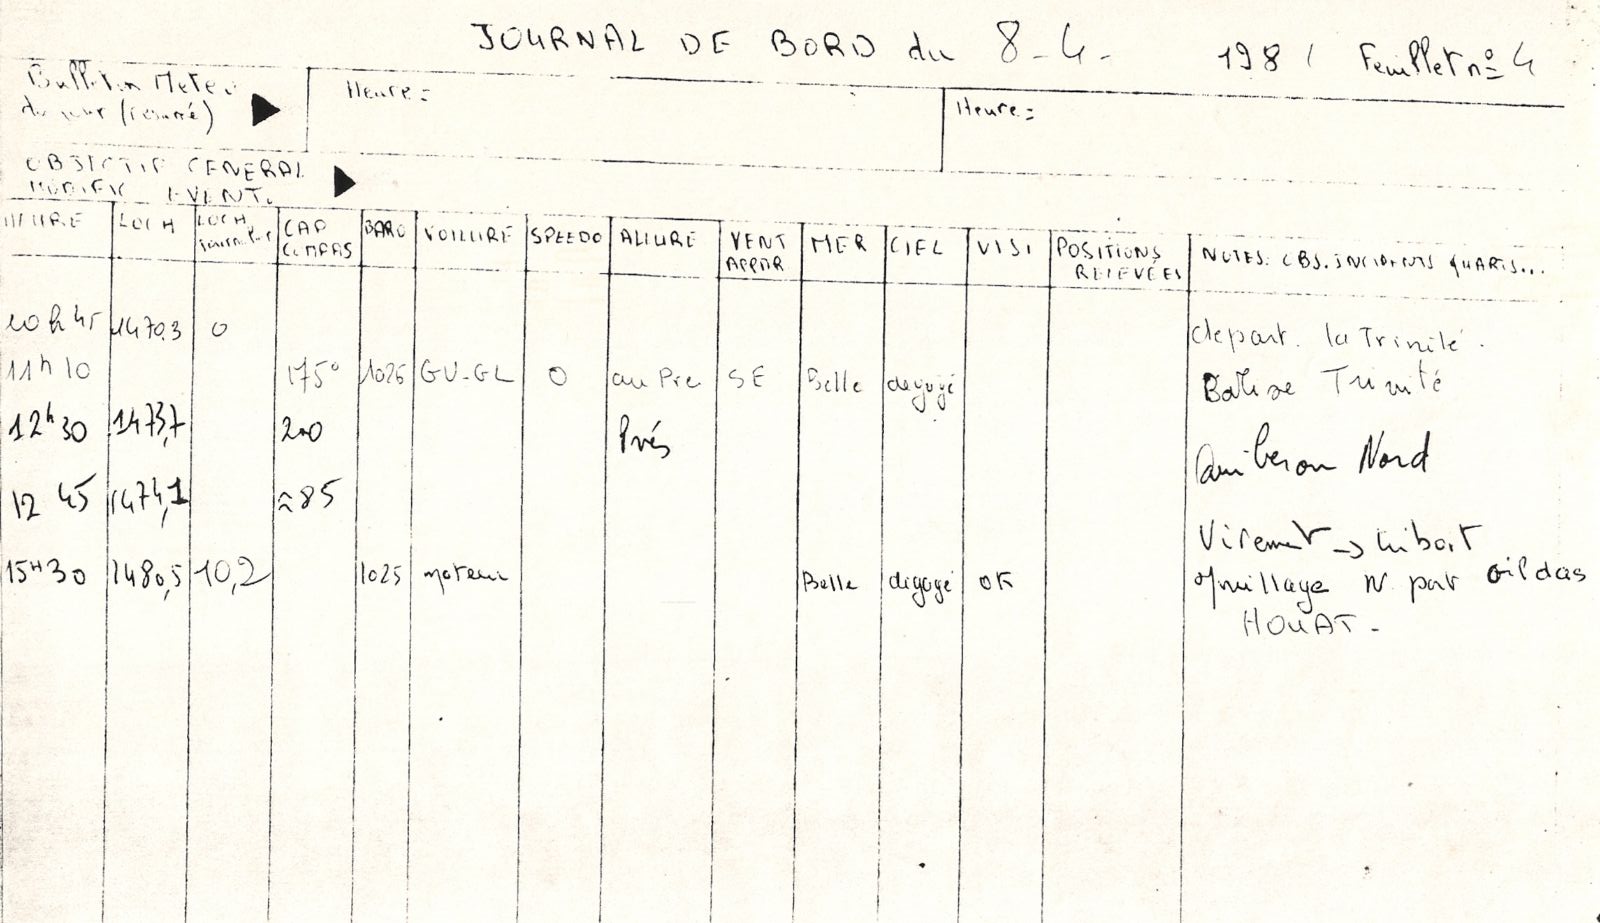 JOURNAL DE BORD du 8-4- 1981 Feuillet nº 4
Bulletin Meteo Heure: Heure:
du jour (résumé)
OBJECTIF GENERAL
MODIFIC EVENT.
HEURE LOCH LOCH journalier CAP COMPAS BARO VOILURE SPEEDO ALLURE VENT APPAR MER CIEL VISI POSITIONS RELEVÉES NOTES: OBS. INCIDENTS QUARTS...
10h45 1470.3 0 depart. la Trinité.
11h10 175° 1026 GV-GL 0 au Pre SE Belle degagé Balise Trinité
12h30 1473,7 200 Près Quiberon Nord
12 45 1474,1 ≈85 Virement →
15H30 1480,5 10,2 1025 moteur Belle degagé OK mouillage N. port Gildas
HOUAT-